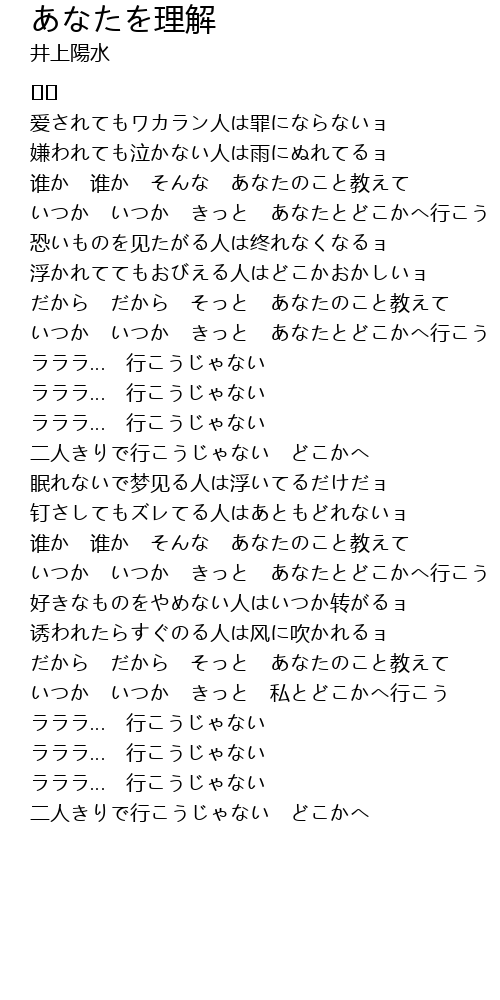 あなたを理解
井上陽水
爱されてもワカラン人は罪にならないョ
嫌われても泣かない人は雨にぬれてるョ
谁か　谁か　そんな　あなたのこと教えて
いつか　いつか　きっと　あなたとどこかへ行こう
恐いものを见たがる人は终れなくなるョ
浮かれててもおびえる人はどこかおかしいョ
だから　だから　そっと　あなたのこと教えて
いつか　いつか　きっと　あなたとどこかへ行こう
ラララ…　行こうじゃない
ラララ…　行こうじゃない
ラララ…　行こうじゃない
二人きりで行こうじゃない　どこかへ
眠れないで梦见る人は浮いてるだけだョ
钉さしてもズレてる人はあともどれないョ
谁か　谁か　そんな　あなたのこと教えて
いつか　いつか　きっと　あなたとどこかへ行こう
好きなものをやめない人はいつか转がるョ
诱われたらすぐのる人は风に吹かれるョ
だから　だから　そっと　あなたのこと教えて
いつか　いつか　きっと　私とどこかへ行こう
ラララ…　行こうじゃない
ラララ…　行こうじゃない
ラララ…　行こうじゃない
二人きりで行こうじゃない　どこかへ